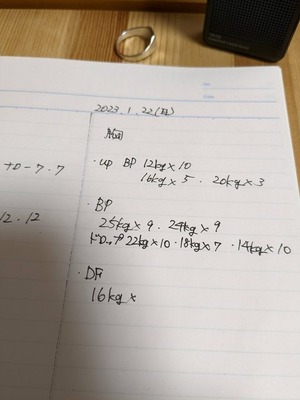 2023.1.22(日)
胸
・up BP 12kg×10
16kg×5 . 20kg×3
・BP
25kg×9 . 24kg×9
ドロップ22kg×10 ・18kg×7 ・14kg×10
・DF
16kg×
ナロー7.7
12.12